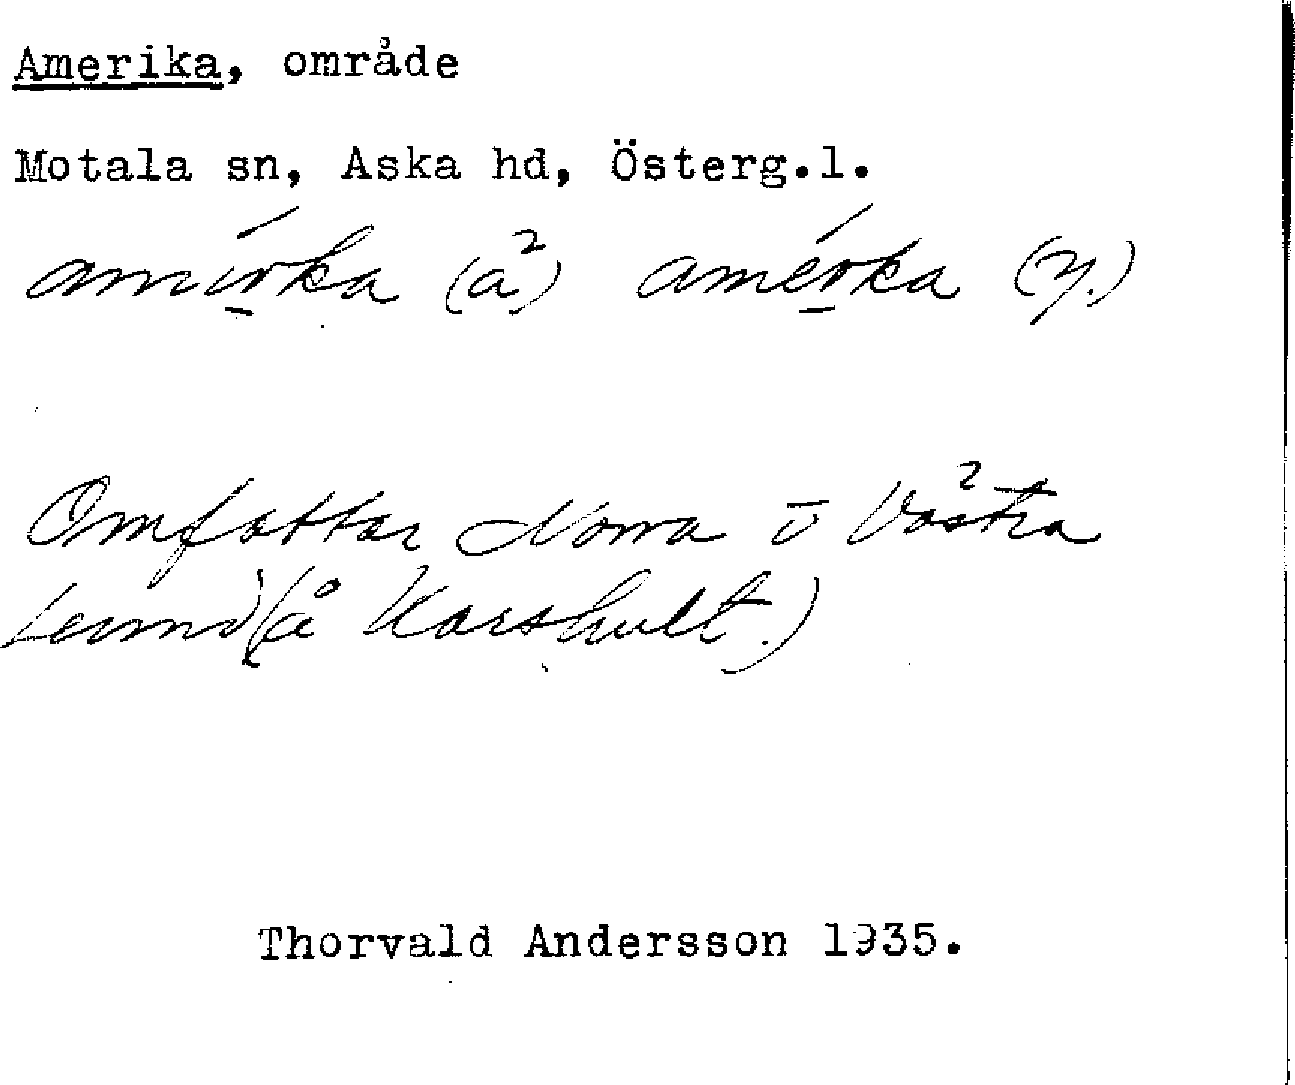 Amerika, område
Motala sn, Aska hd, Österg.l.
amírka (ä) amérka (y.)
Omfattar Norra o Västra
Lund (å Karshult.)
Thorvald Andersson 1935.